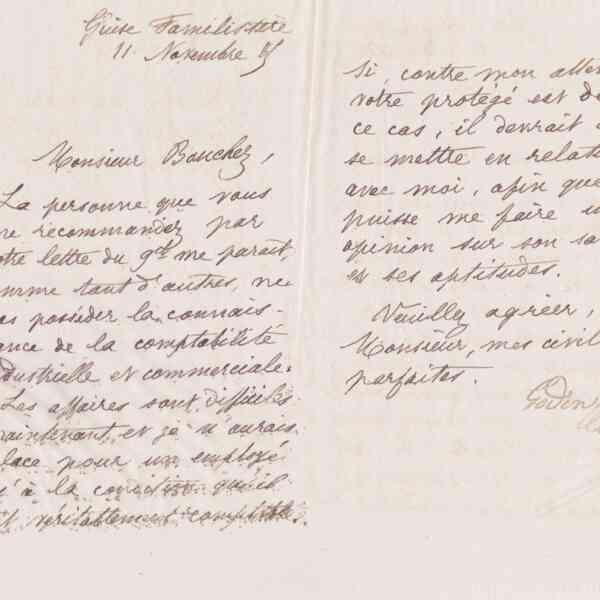 Guise Familistère
11 Novembre 85
Monsieur Bauchez,
La personne que vous
me recommandez par
otre lettre du 9 ct me parait,
omme tant d'autres, ne
as posséder la connais-
ance de la comptabilité
ndustrielle et commerciale.
Les affaires sont difficiles
maintenant, et je n'aurais
lace pour un employé
u'à la condition qu'il
t véritablement comptable.
Si, contre mon atten
votre protégé est da
ce cas, il devrait
se mettre en relati
avec moi, afin que
puisse me faire u
opinion sur son sa
et ses aptitudes.
Veuillez agréer,
Monsieur, mes civil
parfaites.
Godin